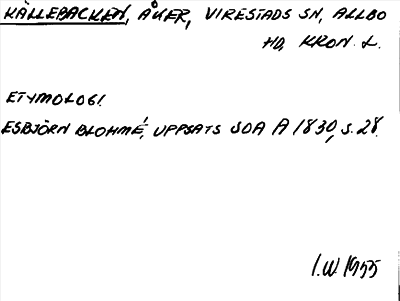 KÄLLEBACKEN, ÅKER, VIRESTADS SN, ALLBO
HD, KRON. L.
ETYMOLOGI.
ESBJÖRN BLOHMÉ, UPPSATS SOA A 1830, S. 28.
I.W. 1955